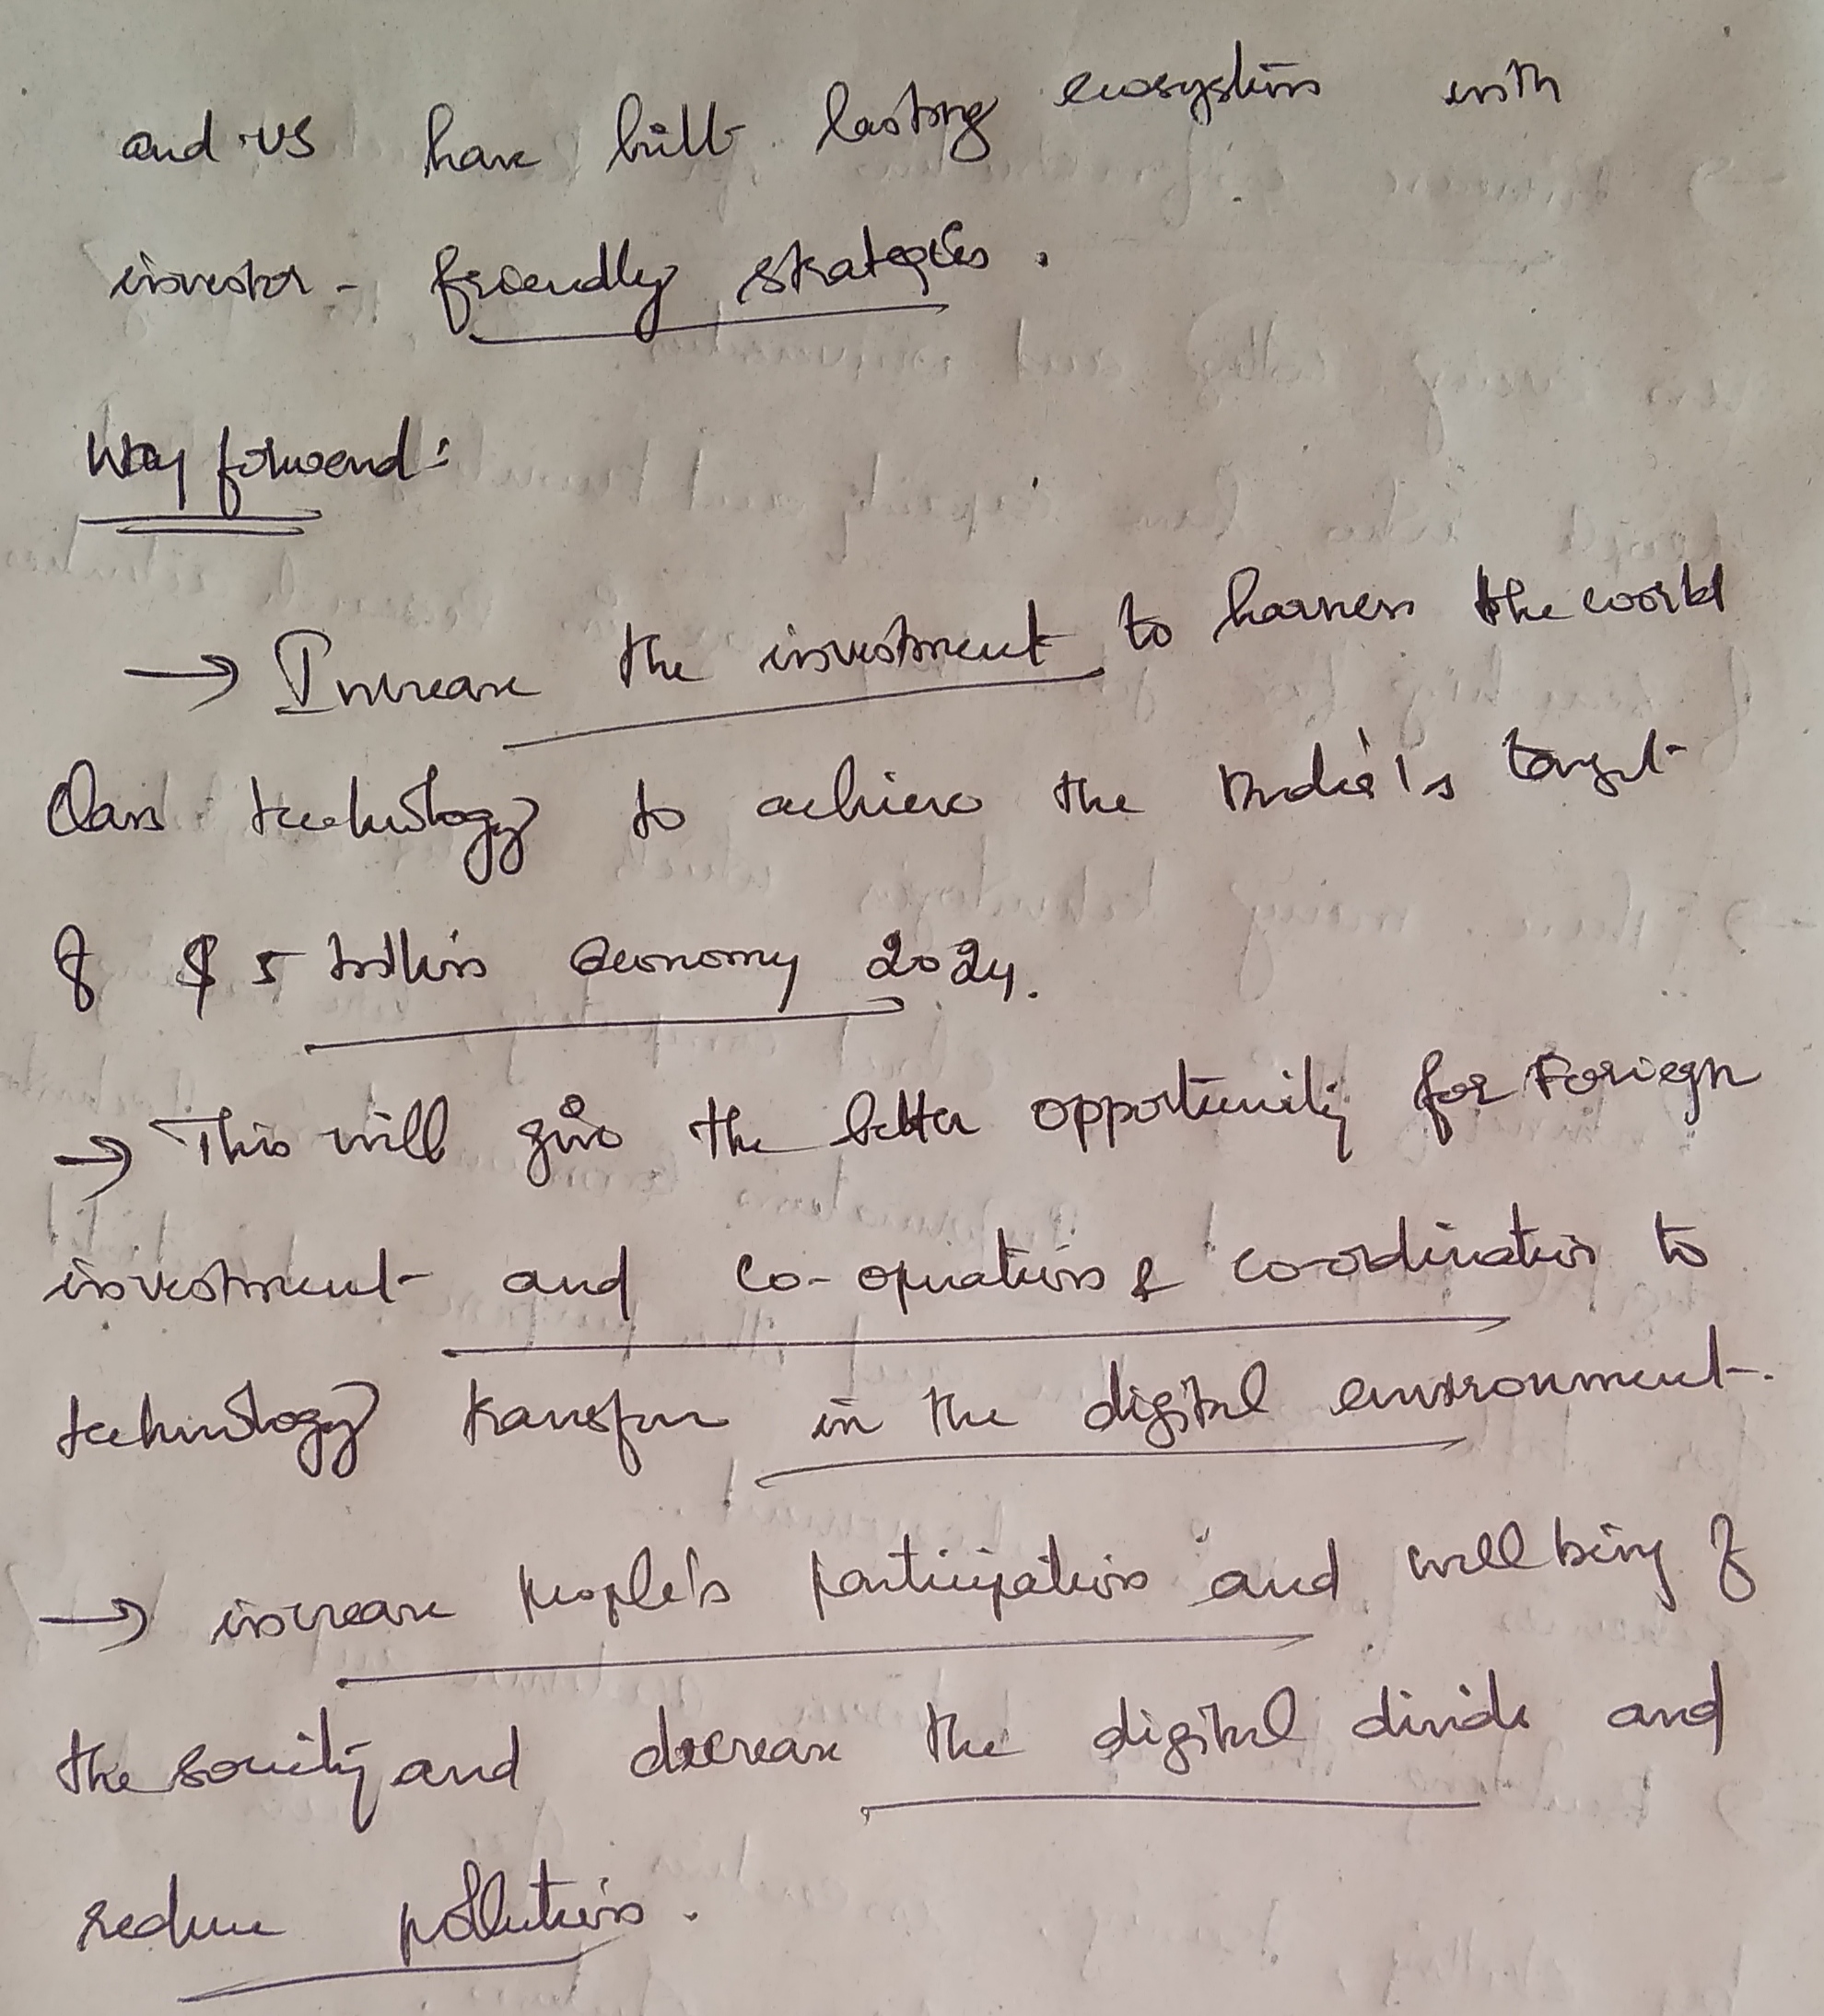 and US have built lasting ecosystems with
investor - friendly strategies.
Way forward:
→ Increase the investment to harness the world
Class technology to achieve the India's target
of $ 5 trillion economy 2024.
→ This will give the better opportunity for Foriegn
investment and co-operation & co-ordination to
technology transfer in the digital environment.
→ increase people's participation and well being of
the society and decrease the digital divide and
reduce pollution.